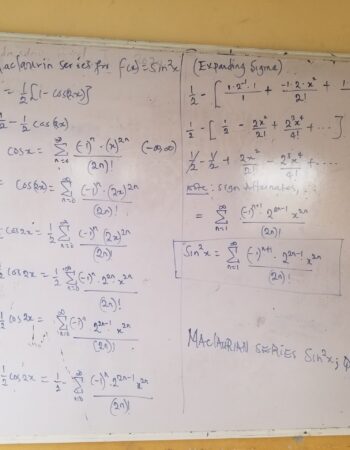 Maclaurin series for f(x) = Sin²x
= 1/2 [1 - cos(2x)]
1/2 - 1/2 cos(2x)
Cosx = ∞ Σ n=0 (-1)^n (x)^2n / (2n)! (-∞, ∞)
cos(2x) = ∞ Σ n=0 (-1)^n (2x)^2n / (2n)!
1/2 cos2x = 1/2 ∞ Σ n=0 (-1)^n (2x)^2n / (2n)!
1/2 cos2x = 1/2 ∞ Σ n=0 (-1)^n 2^2n x^2n / (2n)!
1/2 cos2x = ∞ Σ n=0 (-1)^n 2^2n-1 x^2n / (2n)!
1/2 cos2x = 1/2 - ∞ Σ n=0 (-1)^n · 2^2n-1 x^2n / (2n)!
(Expanding Sigma)
1/2 - [ 1·2^-1·1 / 1 + -1·2·x² / 2! +
1/2 - [ 1/2 - 2x²/2! + 2³x⁴/4! + ··· ]
1/2 - 1/2 + 2x²/2! - 2³x⁴/4! + ····
Note: Sign Alternates,
= ∞ Σ n=1 (-1)^n+1 2^2n-1 x^2n / (2n)!
Sin²x = ∞ Σ n=1 (-1)^n+1 2^2n-1 x^2n / (2n)!
MACLAURIAN SERIES Sin²x;